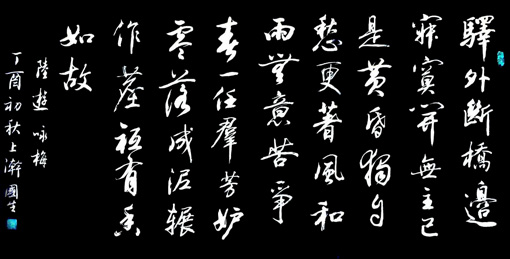 驛外斷橋邊
寂寞開無主已
是黃昏獨自
愁更著風和
雨無意苦爭
春一任羣芳妒
零落成泥輾
作塵祗有香
如故
陸遊咏梅
丁酉初秋上澣國生